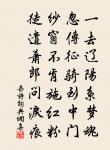 一去辽阳系梦魂
忽传征骑到中门
纱窗不肯施红粉
徒遣萧郎问泪痕
古诗词典调美